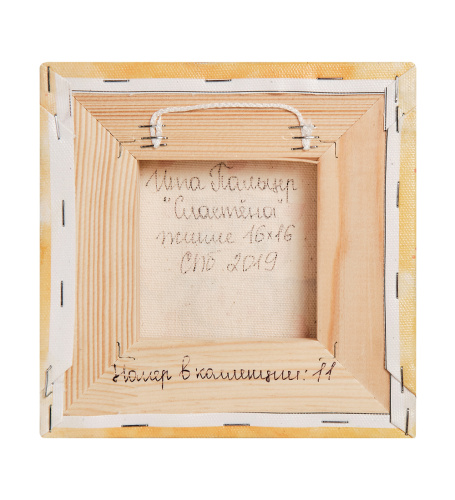 "Сластёна"
жикле 16×16
СПб 2019
Номер в коллекции: 11